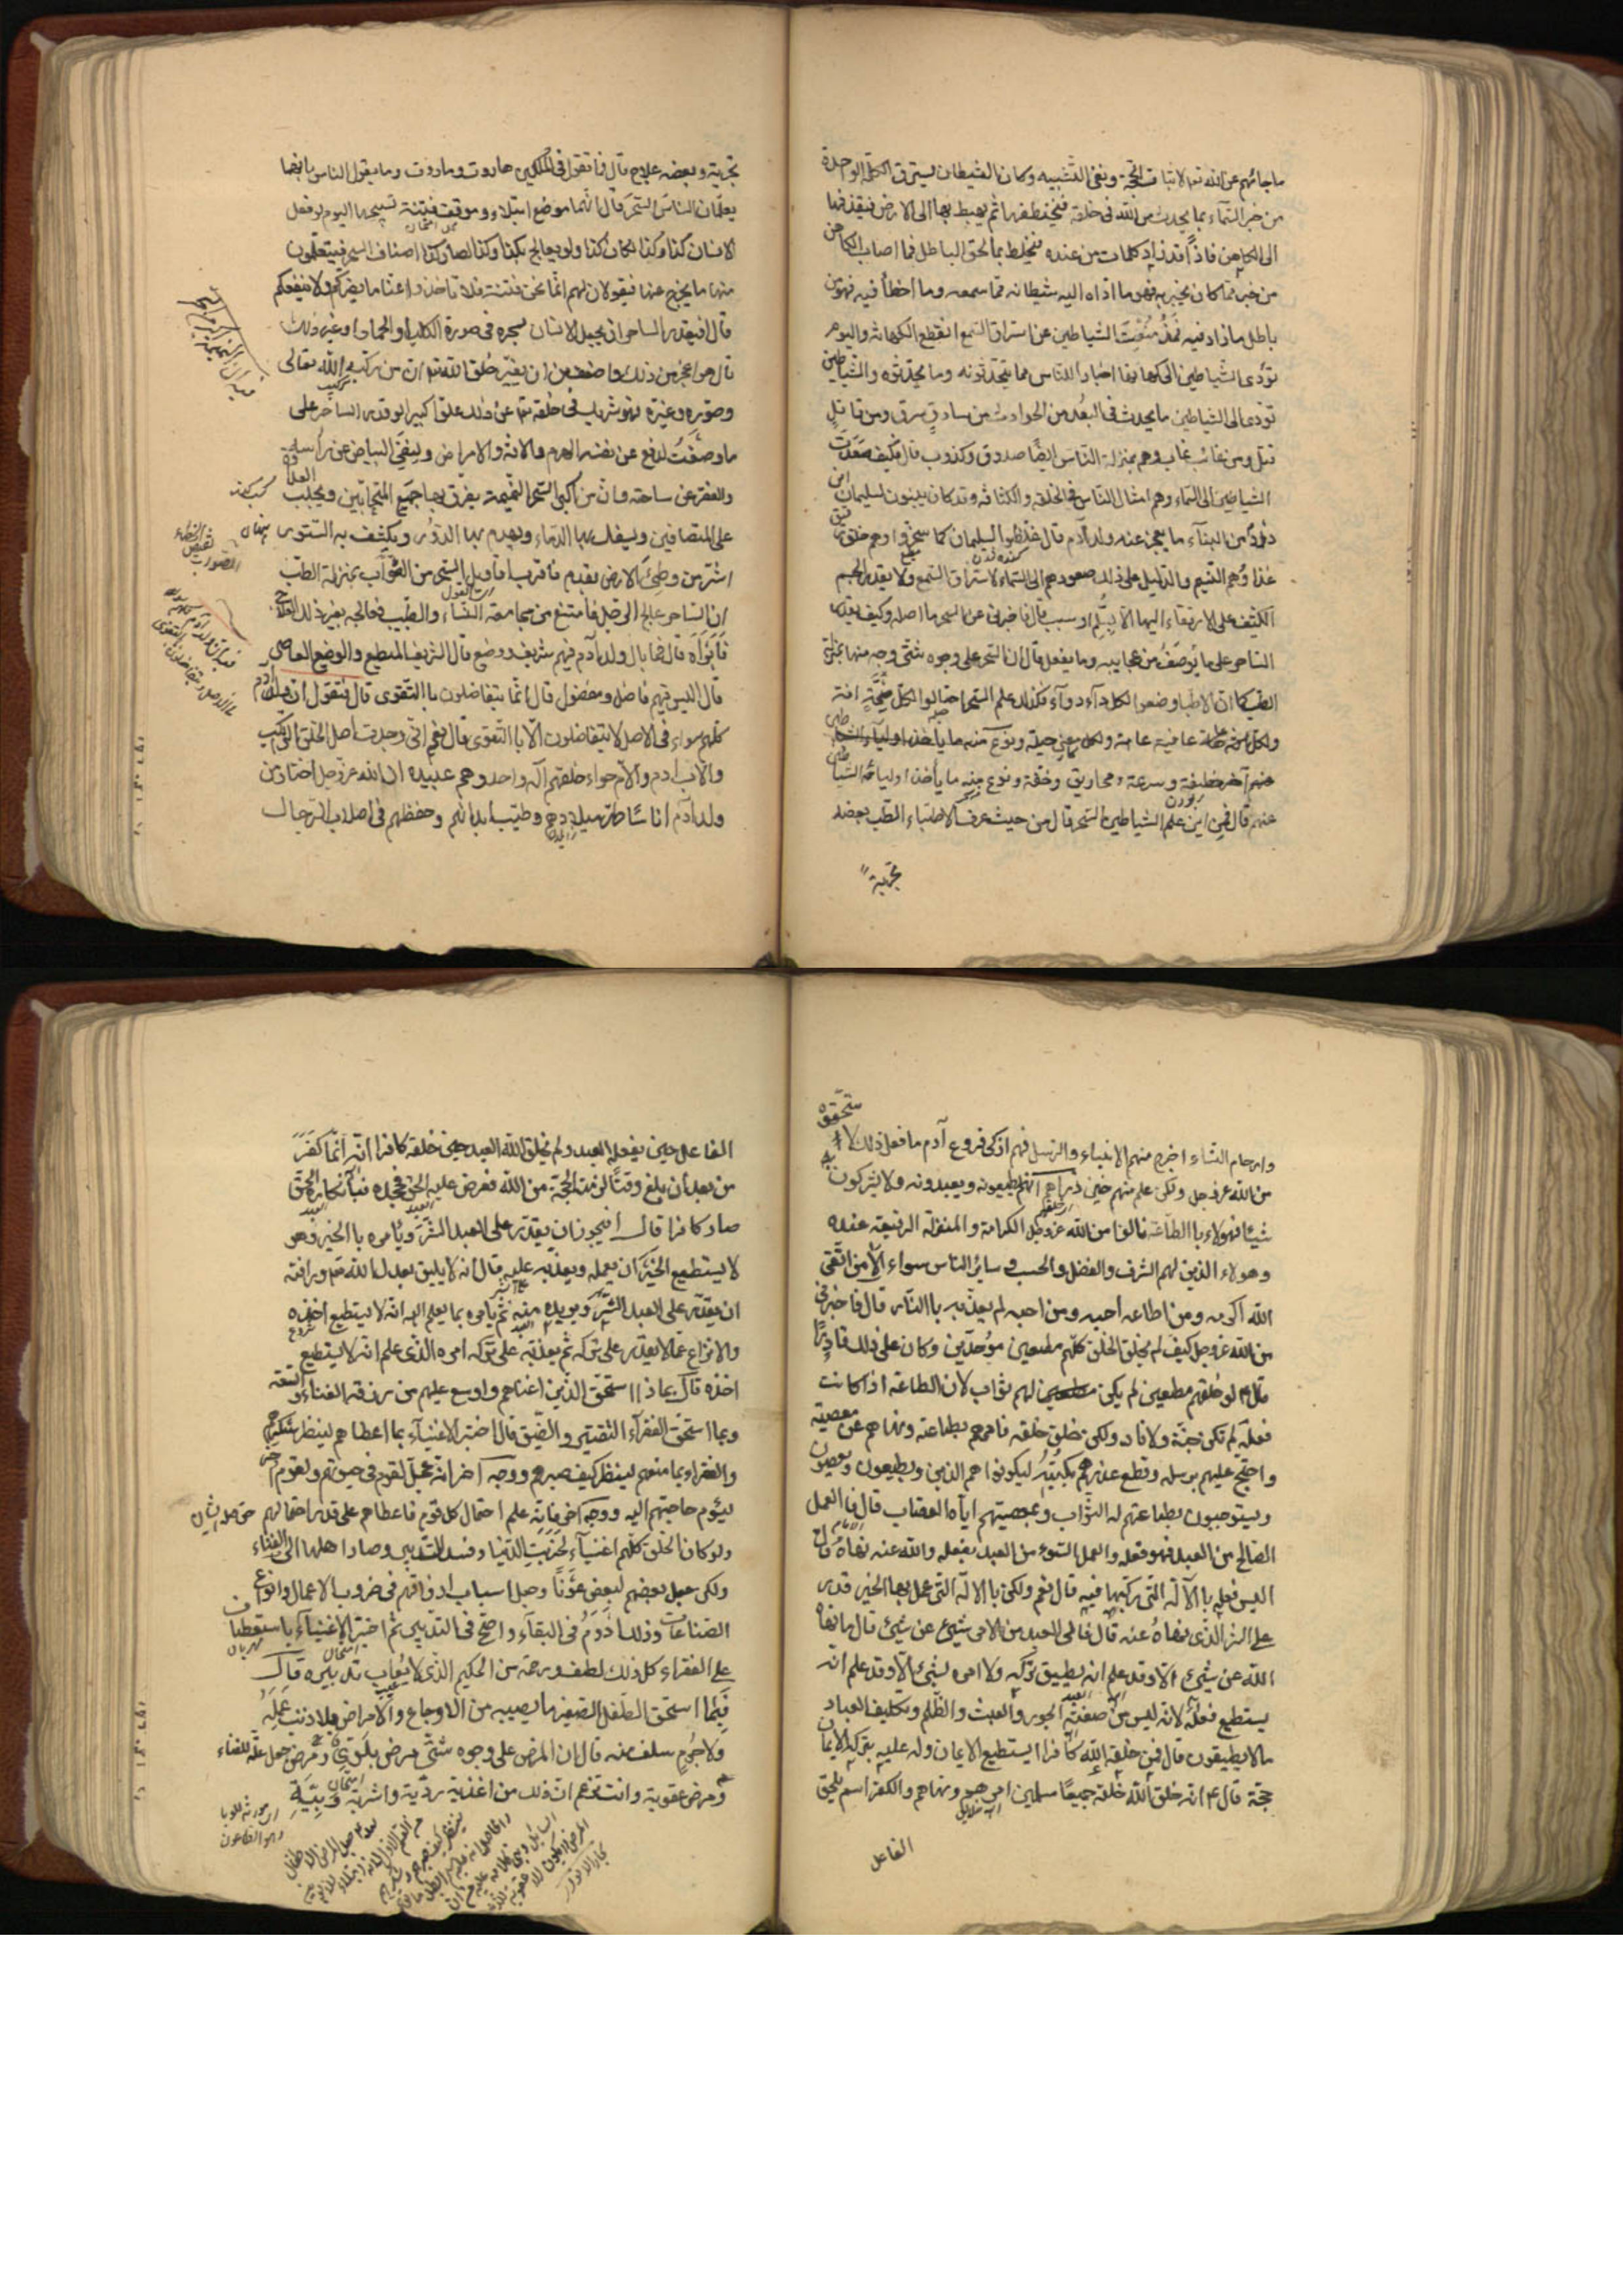 ما جائهم عن الله تعم لاثبات الحجة ونفى التشبيه وكان الشيطان يسترق الكلمة الواحدة
من خبر السماء بما يحدث من الله فى خلقه فيختطفها ثم يهبط بها الى الارض فيقذفها
الى الكاهن فاذا قد زاد كلمات من عنده فيخلط بالحق الباطل فما اصاب الكاهن
من خبر مما كان يخبر به فهو ما اداه اليه شيطانه مما سمعه وما أخطأ فيه فهو من
باطل ما زاد فيه فمذ منعت الشياطين عن استراق السمع انقطع الكهانة واليوم
تؤدى الشياطين الى كهانها اخبارا للناس مما يتحدثونه وما يحدثوه والشياطين
تؤدى الى الشياطين ما يحدث فى البعد من الحوادث من سارق سرق ومن قاتل
قتل ومن غائب غاب وهم بمنزلة الناس ايضا صدوق وكذوب قال فكيف صعدت
الشياطين الى السماء وهم امثال الناس فى الخلقة والكثافة وقد كان يبنون لسليمان ابن
داود من البناء ما يعجز عنه ولد آدم قال غلظوا لسليمان كما سخروا وهم خلق رقيق
غذاؤهم التنسيم والدليل على ذلك صعودهم الى السماء لاستراق السمع ولا يقدر الجسم
الكثيف على الارتقاء اليها الا بسلم او سبب قال فاخبرنى عن السحر ما اصله وكيف يقدر
الساحر على ما يوصف من عجايبه وما يفعل قال ان السحر على وجوه شتى وجه منها بمنزلة
الطب كما ان الاطباء وضعوا لكل داء دواء فكذلك علم السحر احتالوا لكل صحة افة
ولكل عافية عاهة ولكل معنى حيلة ونوع منه ما يأخذ اولياء الشياطين
منهم آخر خطفة وسرعة ومخاريق وخفة ونوع منه ما يأخذ اولياء الشياطين
عنهم قال فمن اين علم الشياطين السحر قال من حيث عرف الاطباء الطب بعضه
تجربة
تجربة وبعضه علاج قال فما تقول فى الملكين هاروت وماروت وما يقول الناس بانهما
يعلمان الناس السحر قال انهما موضع ابتلاء وموقف فتنة تسبيحهما اليوم لو فعل
الانسان كذا وكذا لكان كذا ولو يعالج بكذا وكذا لصار كذا اصناف السحر فيتعلمون
منهما ما يخرج عنهما فيقولان لهم انما نحن فتنة فلا تأخذوا عنا ما يضركم ولا ينفعكم
قال افيقدر الساحر ان يجعل الانسان بسحره فى صورة الكلب او الحمار او غير ذلك
قال هو اعجز من ذلك واضعف من ان يغير خلق الله تعم ان من ركبه الله تعالى
وصوره وغيره فهو شريك فى خلقه تعم عن ذلك علوا كبيرا لو قدر الساحر على
ما وصفت لدفع عن نفسه الهرم والافة والامراض ولينفى البياض عن رأسه
والفقر عن ساحته وان من اكبر السحر النميمة يفرق بها جميع المتحابين ويجلب العداوة
على المتصافين ويسفك بها الدماء ويهدم بها الدور ويكشف به الستور
اشر من وطئ الارض بقدم فاقرب اقاويل السحر من الصواب بمنزلة الطب
ان الساحر عالج الرجل فامتنع من مجامعة النساء والطبيب فعالجه بغير ذلك العلاج
فأبرأه قال فما بال ولد آدم فيهم شريف ووضيع قال الشريف المطيع والوضيع العاصى
قال اليس فيهم فاضل ومفضول قال انما يتفاضلون بالتقوى قال فتقول ان ولد آدم
كلهم سواء فى الاصل لا يتفاضلون الا بالتقوى قال نعم انى وجدت اصل الخلق التراب
والاب ادم والام حواء خلقهم اله واحد وهم عبيده ان الله عز وجل اختار من
ولد آدم اناسا طهر ميلادهم وطيب ابدانهم وحفظهم فى اصلاب الرجال
وارحام النساء اخرج منهم الانبياء والرسل فهم ازكى فروع آدم ما فعل ذلك لا
من الله عز وجل ولكن علم منهم حين ذرأهم انهم يطيعونه ويعبدونه ولا يشركون به
شيئا فهولاء بالطاعة نالوا من الله عز وجل الكرامة والمنزلة الرفيعة عنده
وهولاء الذين لهم الشرف والفضل والحسب وسائر الناس سواء الا من اتقى
الله اكرمه ومن اطاعه احبه ومن احبه لم يعذبه بالنار قال فاخبرنى
من الله عز وجل كيف لم يخلق الخلق كلهم مطيعين موحدين وكان على ذلك قادرا
قال ع لو خلقهم مطيعين لم يكن لهم ثواب لان الطاعة اذا كانت
فعله لم تكن جنة ولا نار ولكن خلق خلقه فامرهم بطاعته ونهاهم عن معصيته
واحتج عليهم برسله وقطع عذرهم بكتبه ليكونوا هم الذين يطيعون ويعصون
ويستوجبون بطاعتهم له الثواب وبمعصيتهم اياه العقاب قال فالعمل
الصالح من العبد فهو فعله والعمل السوء من العبد يفعله والله عنه نهاه قال
اليس فعله بالآلة التى ركبها فيه قال نعم ولكن بالالة التى عمل بها الخير قدر
على الشر الذى نهاه عنه قال فالى العبد من الامر شيئ قال ما نهاه
الله عن شيئ الا وقد علم انه يطيق تركه ولا امره بشيئ الا وقد علم انه
يستطيع فعله لانه ليس من صفته الجور والعبث والظلم وتكليف العباد
ما لا يطيقون قال فمن خلقه الله كافرا ايستطيع الايمان وله عليه بتركه الايمان
حجة قال ع انه خلق الله خلقه جميعا مسلمين امرهم ونهاهم والكفر اسم يلحق
الفاعل
الفاعل حين يفعله العبد ولم يخلق الله العبد حين خلقه كافرا انه انما كفر
من بعد ان بلغ وقتا لزمته الحجة من الله فعرض عليه الحق فجحده فبانكاره الحق
صار كافرا قال افيجوز ان يقدر على العبد الشر ويأمره بالخير وهو
لا يستطيع الخير ان يعمله ويعذبه عليه قال انه لا يليق بعدل الله تعم ورافته
ان يقدر على العبد الشر ويريده منه ثم يأمره بما يعلم انه لا يستطيع اخذه
والانزاع عما لا يقدر على تركه ثم يعذبه على تركه امره الذى علم انه لا يستطيع
اخذه قال بماذا استحق الذين اغناهم واوسع عليهم من رزقه الغناء والسعة
وبما استحق الفقراء التقتير والضيق قال اختبر الاغنياء بما اعطاهم لينظر كيف شكرهم
والفقراء بما منعهم لينظر كيف صبرهم ووجه آخر انه عجل لقوم فى حيوتهم ولقوم اخر
ليوم حاجتهم اليه ووجه آخر فانه علم احتمال كل قوم فاعطاهم على قدر احتمالهم
ولو كان الخلق كلهم اغنياء لخربت الدنيا وفسد التدبير وصار اهلها الى الفناء
ولكن جعل بعضهم لبعض عونا وجعل اسباب ارزاقهم فى ضروب الاعمال وانواع
الصناعات وذلك ادوم فى البقاء واصح فى التدبير ثم اختبر الاغنياء باستعطاف
على الفقراء كل ذلك لطف ورحمة من الحكيم الذى لا يعاب تدبيره قال
فبما استحق الطفل الصغير ما يصيبه من الاوجاع والامراض بلا ذنب عمله
ولا جرم سلف منه قال ان المرض على وجوه شتى مرض بلوى ومرض جعل علة للفناء
ومرض عقوبة وانت تزعم ان ذلك من اغذية ردية واشربة وبية